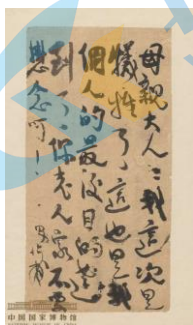 母親大人：我這次是
犧牲了，這也是我
個人的最後目的達
到了，你老人家不要
懸念呵！！男
中国国家博物馆